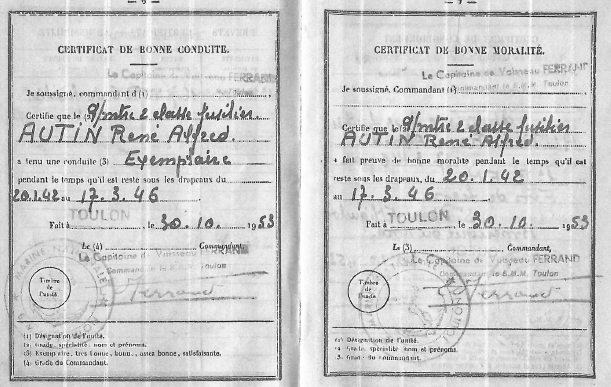 — 6 —
CERTIFICAT DE BONNE CONDUITE.
Le Capitaine de Vaisseau FERRAND
Je soussigné, commandant d (1)
Certifie que le (2) q/mtre 2 classe fusilier
AUTIN René Alfred.
a tenu une conduite (3) Exemplaire
pendant le temps qu'il est resté sous les drapeaux du
20.1.42 au 17.3.46
TOULON
Fait à , le 30.10. 1953
Le (4) Commandant,
Le Capitaine de Vaisseau FERRAND
Commandant le Toulon
Timbre
de
l'unité
Ferrand
(1) Désignation de l'unité.
(2) Grade, spécialité, nom et prénoms.
(3) Exemplaire, très bonne, bonne, assez bonne, satisfaisante.
(4) Grade du Commandant.
— 7 —
CERTIFICAT DE BONNE MORALITÉ.
Le Capitaine de Vaisseau FERRAND
Je soussigné, Commandant (1) Commandant le S.M.M. Toulon
Certifie que le (2) q/mtre 2 classe fusilier
AUTIN René Alfred.
a fait preuve de bonne moralité pendant le temps qu'il est
resté sous les drapeaux, du 20.1.42
au 17.3.46
TOULON
Fait à , le 30.10. 1953
Le (3) Commandant,
Le Capitaine de Vaisseau FERRAND
Commandant le S.M.M. Toulon
Timbre
de
l'unité
Ferrand
(1) Désignation de l'unité.
(2) Grade, spécialité, nom et prénoms.
(3) Grade du commandant.